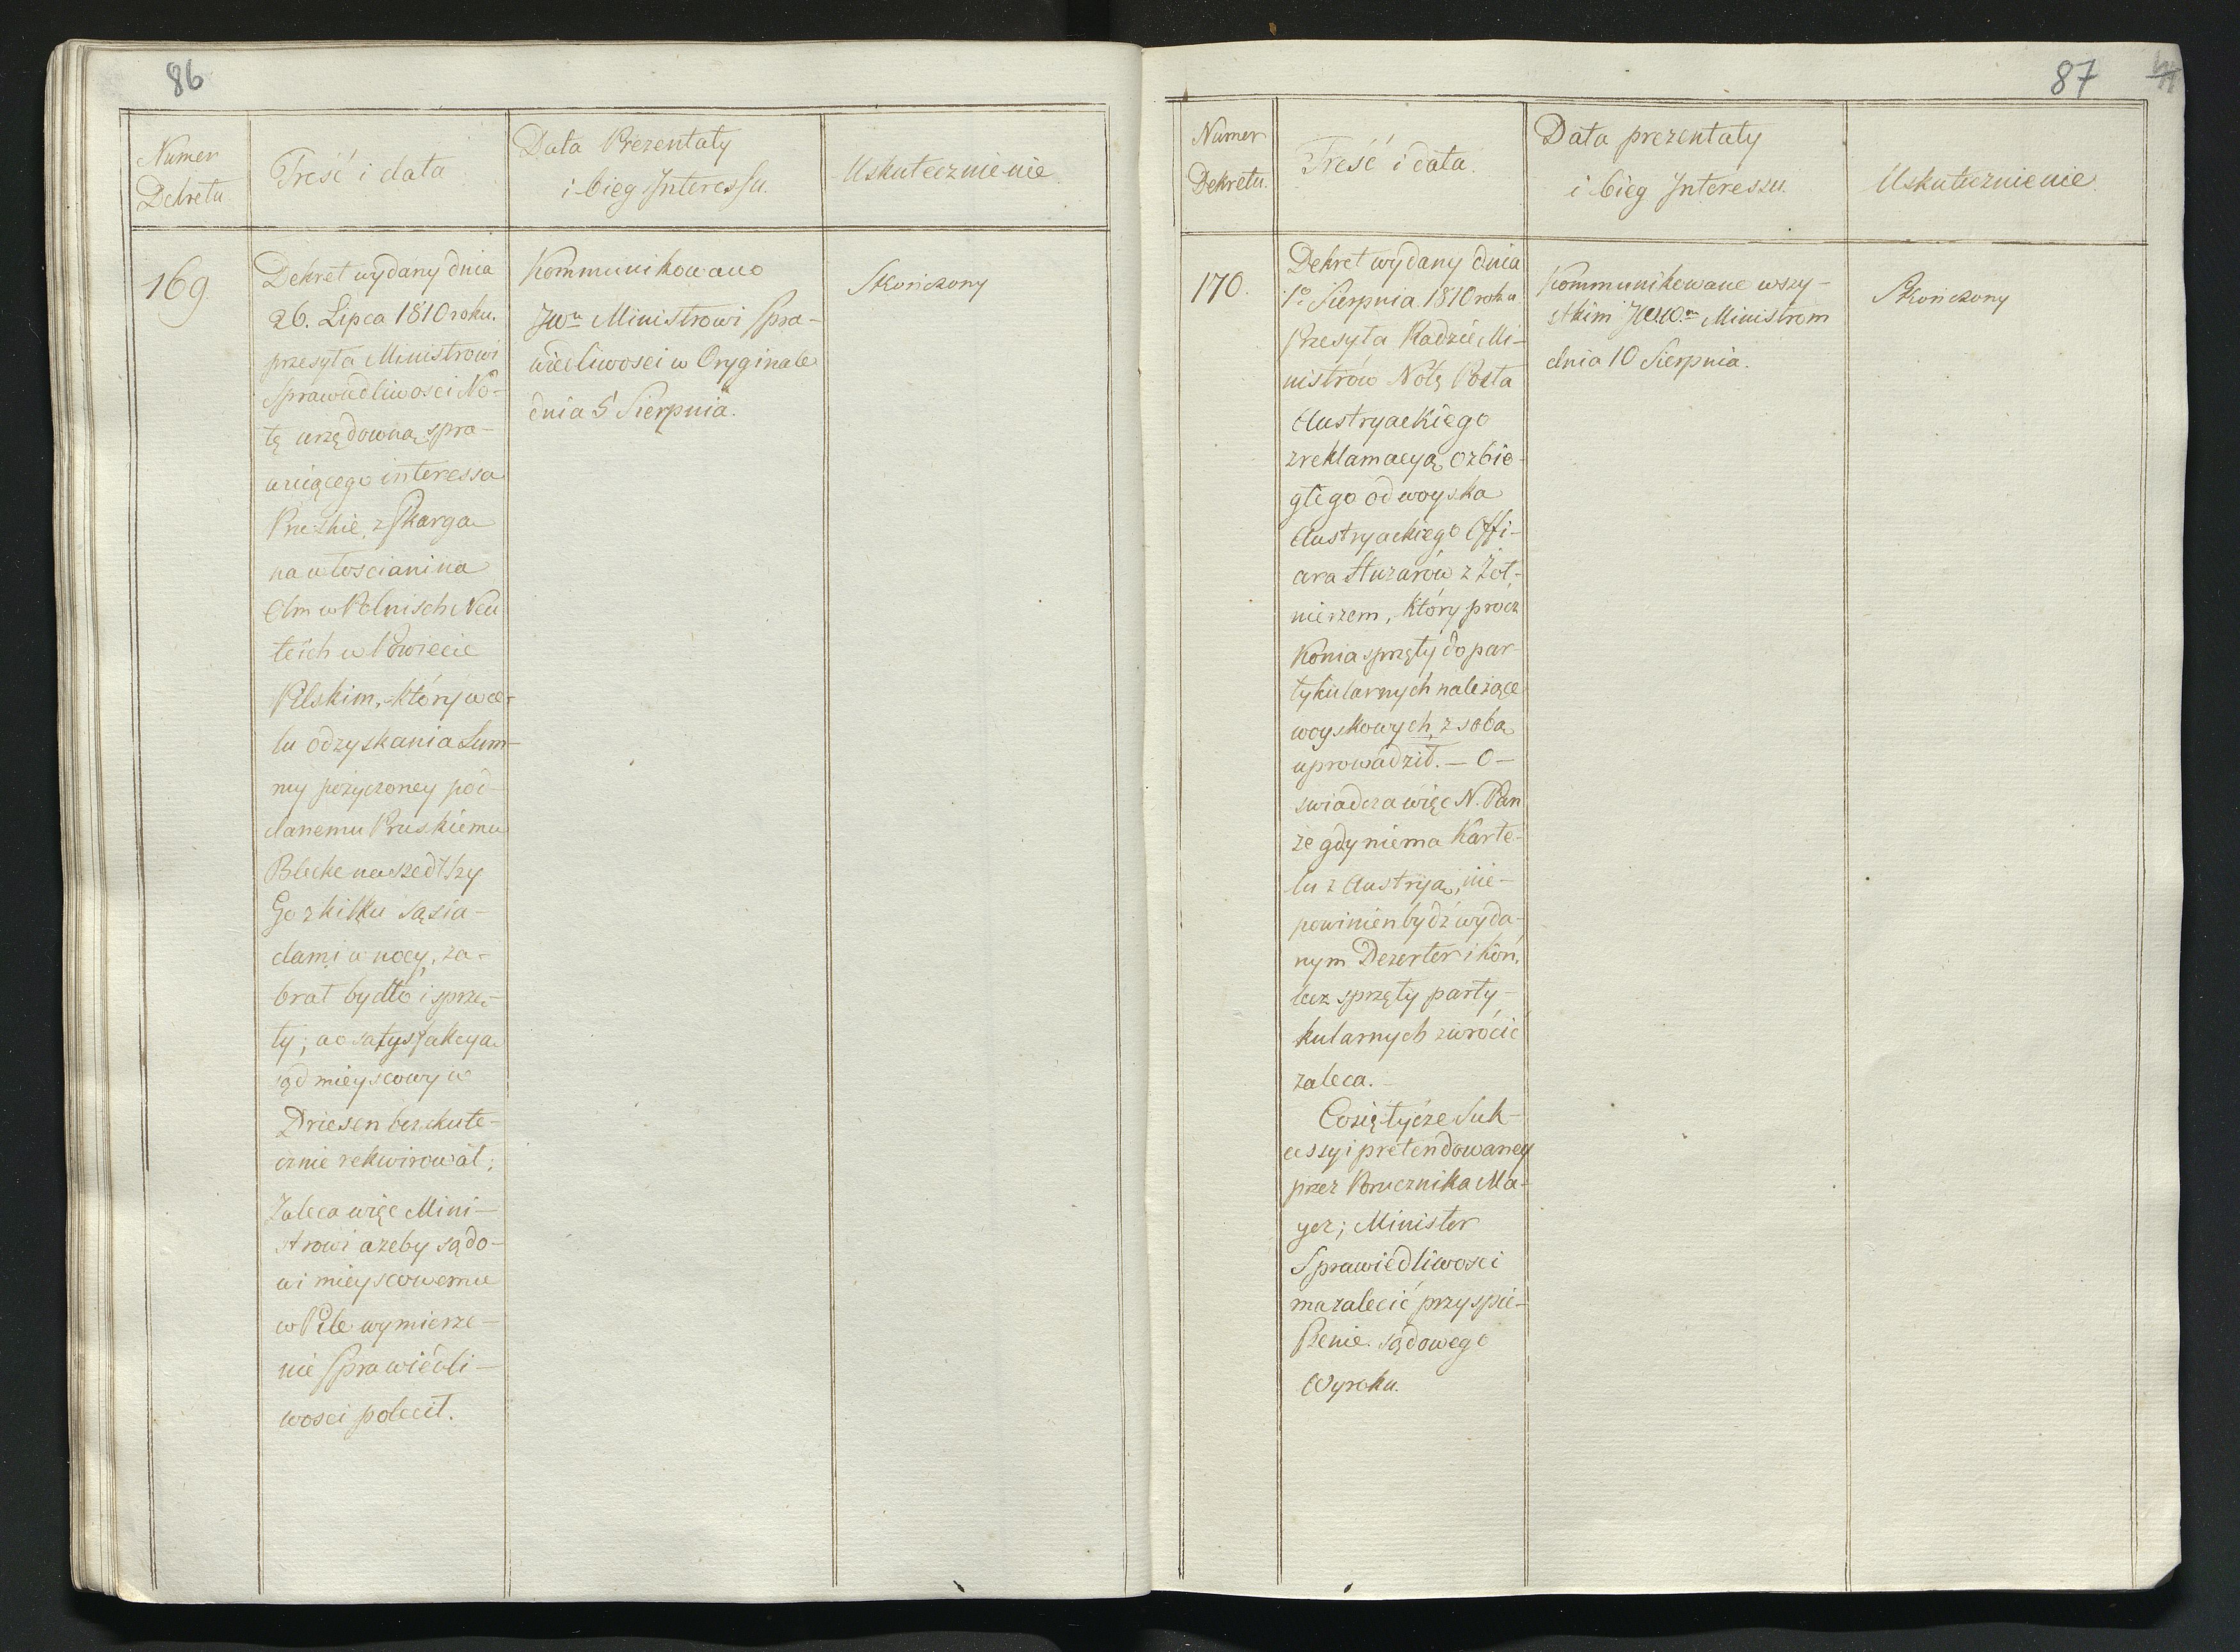 86
Numer
Dekretu
Treść i data
Data Prezentaty
i bieg Interessu.
Uskutecznienie.
169.
Dekret wydany dnia
26. Lipca 1810 roku.
przesyła Ministrowi
Sprawiedliwosci No-
tę urzędowną spra-
wuiącego interessa
Pruskie, z skargą
na włoscianina
w Polnisch Neu
teich w Powiecie
Pilskim, który w ce-
lu odzyskania Sum-
my pożyczoney pod-
danemu Pruskiemu
Blecke naszedłszy
Go z kilku sąsia-
dami w nocy, za-
brał bydło i sprzę-
ty; a o satysfakcyą
sąd mieyscowy w
Driesen bezskute-
cznie rekwirował;
Zaleca więc Mini-
strowi ażeby sądo-
wi mieyscowemu
w Pile wymierze-
nie Sprawiedli-
wosci polecił.
Kommunikowano
JWu Ministrowi Spra-
wiedliwosci w Oryginale
dnia 5 Sierpnia.
Skończony
87
Numer
Dekretu.
Treść i data.
Data prezentaty
i bieg Interessu.
Uskutecznienie.
170.
Dekret wydany dnia
1o Sierpnia 1810 roku
Przesyła Radzie Mi-
nistrów Notę Posła
Austryackiego
z reklamacyą o zbie-
głego od woyska
Austryackiego Offi-
cera Huzarów z Żoł-
nierzem, który prócz
Konia sprzęty do par-
tykularnych należące
woyskowych, z sobą
uprowadził. — O —
swiadcza więc N. Pan
że gdy niema Karte-
lu z Austryą, nie-
powinien bydź wyda-
nym Dezerter i koń,
lecz sprzęty party-
kularnych zwrócić
zaleca. —
Co się tycze Suk-
cessyi pretendowaney
przez Porucznika Ma-
yer; Minister
Sprawiedliwosci
ma zalecić przyspie-
szenie sądowego
Wyroku.
Kommunikowane wszy-
stkim JWW.m Ministrom
dnia 10 Sierpnia.
Skończony